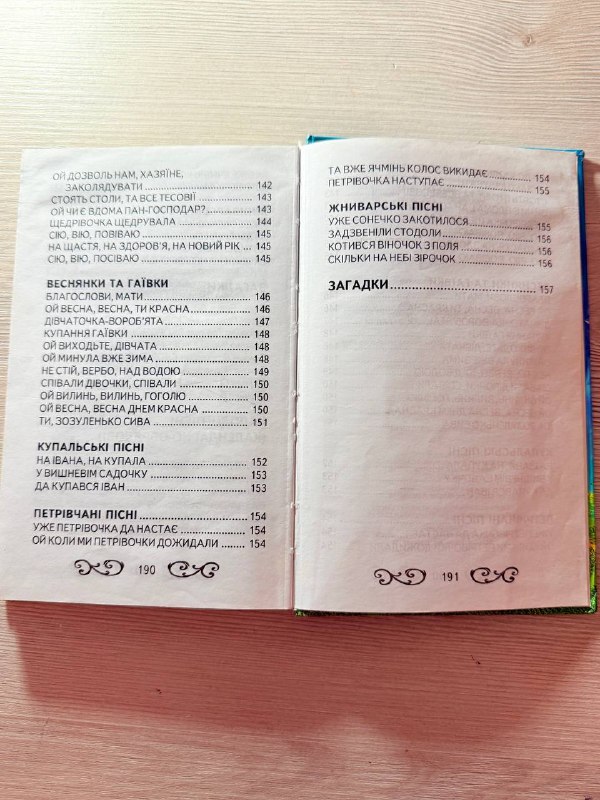 ОЙ ДОЗВОЛЬ НАМ, ХАЗЯЇНЕ,
ЗАКОЛЯДУВАТИ ........ 142
СТОЯТЬ СТОЛИ, ТА ВСЕ ТЕСОВІЇ ........ 143
ОЙ ЧИ Є ВДОМА ПАН-ГОСПОДАР? ........ 143
ЩЕДРІВОЧКА ЩЕДРУВАЛА ........ 144
СІЮ, ВІЮ, ПОВІВАЮ ........ 145
НА ЩАСТЯ, НА ЗДОРОВ'Я, НА НОВИЙ РІК ... 145
СІЮ, ВІЮ, ПОСІВАЮ ........ 145
ВЕСНЯНКИ ТА ГАЇВКИ
БЛАГОСЛОВИ, МАТИ ........ 146
ОЙ ВЕСНА, ВЕСНА, ТИ КРАСНА ........ 146
ДІВЧАТОЧКА-ВОРОБ'ЯТА ........ 147
КУПАННЯ ГАЇВКИ ........ 148
ОЙ ВИХОДЬТЕ, ДІВЧАТА ........ 148
ОЙ МИНУЛА ВЖЕ ЗИМА ........ 148
НЕ СТІЙ, ВЕРБО, НАД ВОДОЮ ........ 149
СПІВАЛИ ДІВОЧКИ, СПІВАЛИ ........ 150
ОЙ ВИЛИНЬ, ВИЛИНЬ, ГОГОЛЮ ........ 150
ОЙ ВЕСНА, ВЕСНА ДНЕМ КРАСНА ........ 150
ТИ, ЗОЗУЛЕНЬКО СИВА ........ 151
КУПАЛЬСЬКІ ПІСНІ
НА ІВАНА, НА КУПАЛА ........ 152
У ВИШНЕВІМ САДОЧКУ ........ 153
ДА КУПАВСЯ ІВАН ........ 153
ПЕТРІВЧАНІ ПІСНІ ........ 154
УЖЕ ПЕТРІВОЧКА ДА НАСТАЄ ........ 154
ОЙ КОЛИ МИ ПЕТРІВОЧКИ ДОЖИДАЛИ ........ 154
190
ТА ВЖЕ ЯЧМІНЬ КОЛОС ВИКИДАЄ ........ 154
ПЕТРІВОЧКА НАСТУПАЄ ........ 155
ЖНИВАРСЬКІ ПІСНІ
УЖЕ СОНЕЧКО ЗАКОТИЛОСЯ ........ 155
ЗАДЗВЕНІЛИ СТОДОЛИ ........ 156
КОТИВСЯ ВІНОЧОК З ПОЛЯ ........ 156
СКІЛЬКИ НА НЕБІ ЗІРОЧОК ........ 156
ЗАГАДКИ ........ 157
191